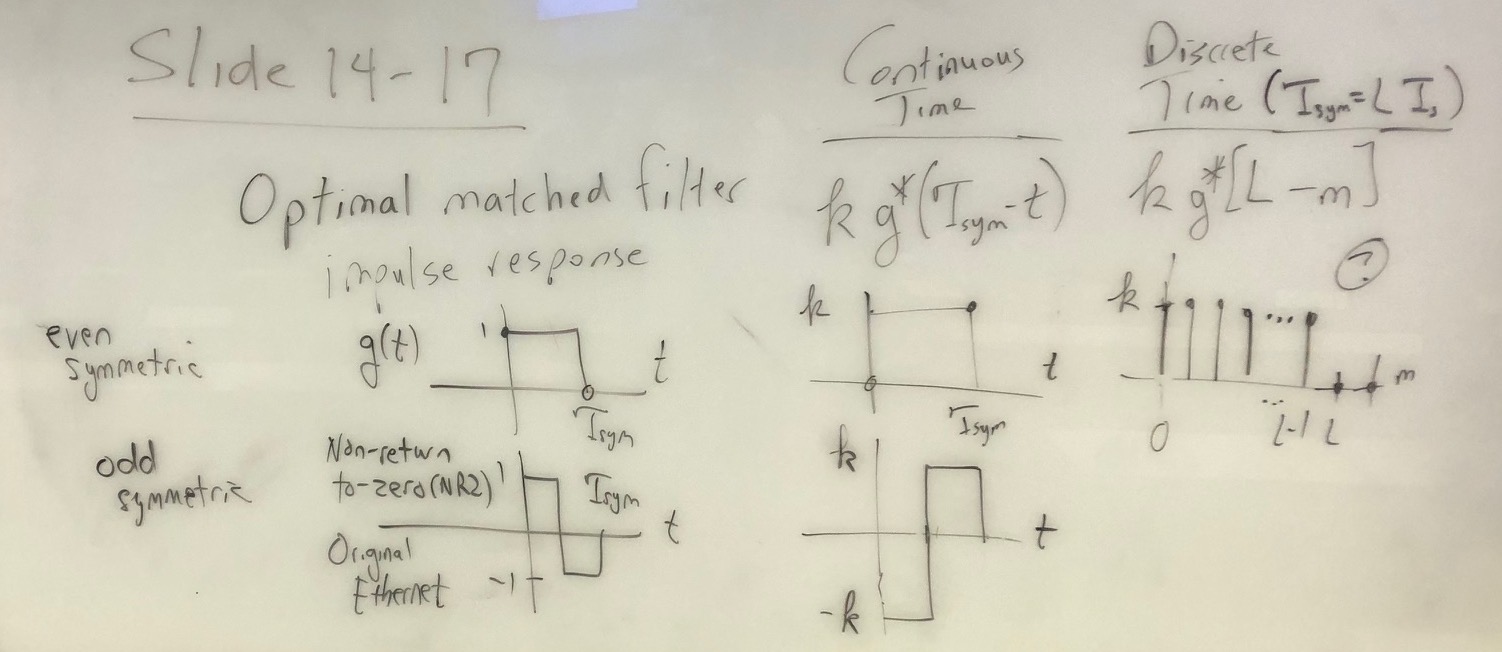 Slide 14-17
Continuous
Time
Discrete
Time (Tsym = L Ts)
Optimal matched filter
impulse response
k g*(Tsym-t)
k g*[L-m]
?
even
symmetric
g(t)
1
t
Tsym
k
t
Tsym
k
...
m
0
...
L-1
L
odd
symmetric
Non-return
to-zero (NRZ)
1
Tsym
t
Original
Ethernet
-1
k
t
-k